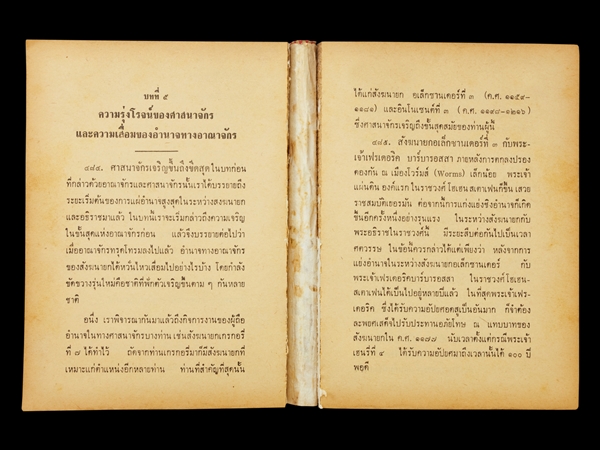 บทที่ ๕
ความรุ่งโรจน์ของศาสนาจักร
และความเสื่อมของอำนาจทางอาณาจักร
๔๘๔. ศาสนาจักรเจริญขึ้นถึงขีดสุด ในบทก่อน
ที่กล่าวด้วยอาณาจักรและศาสนาจักรนั้นเราได้บรรยายถึง
ระยะเริ่มต้นของการแผ่อำนาจสูงสุดในระหว่างสังฆนายก
และอธิราชมาแล้ว ในบทนี้เราจะเริ่มกล่าวถึงความเจริญ
ในขั้นสุดแห่งอาณาจักรก่อน แล้วจึงบรรยายต่อไปว่า
เมื่ออาณาจักรทรุดโทรมลงไปแล้ว อำนาจทางอาณาจักร
ของสังฆนายกได้หวั่นไหวเสื่อมไปอย่างไรบ้าง โดยกำลัง
ขัดขวางรุ่นใหม่คือชาติที่พึ่งตัวเจริญขึ้นตาม ๆ กันหลาย
ชาติ
อนึ่ง เราพิจารณากันมาแล้วถึงกิจการงานของผู้ถือ
อำนาจในทางศาสนาจักรบางท่าน เช่นสังฆนายกเกรกอรี่
ที่ ๗ ได้ทำไว้ ถัดจากท่านเกรกอรี่มาก็มีสังฆนายกที่
เหมาะแก่ตำแหน่งอีกหลายท่าน ท่านที่สำคัญที่สุดนั้น
ได้แก่สังฆนายก อเล็กซานเดอร์ที่ ๓ (ค.ศ. ๑๑๕๙-
๑๑๘๑) และอินโนเซนต์ที่ ๓ (ค.ศ. ๑๑๙๘-๑๒๑๖)
ซึ่งศาสนาจักรเจริญถึงขั้นสุดสมัยของท่านผู้นี้
๔๘๕. สังฆนายกอเล็กซานเดอร์ที่ ๓ กับพระ-
เจ้าเฟรเดอริค บาร์บารอสสา ภายหลังการตกลงปรอง
ดองกัน ณ เมืองไวร์มส์ (Worms) เล็กน้อย พระเจ้า
แผ่นดิน องค์แรก ในราชวงศ์ โฮเฮน สเตาเฟนก็ขึ้น เสวย
ราชสมบัติเยอรมัน ต่อจากนี้การแก่งแย่งชิงอำนาจก็เกิด
ขึ้นอีกครั้งหนึ่งอย่างรุนแรง ในระหว่างสังฆนายกกับ
พระอธิราชในราชวงศ์นี้ มีระยะสืบต่อกันไปเป็นเวลา
ศตวรรษ ในข้อนี้ควรกล่าวได้แต่เพียงว่า หลังจากการ
แย่งอำนาจในระหว่างสังฆนายกอเล็กซานเดอร์ กับ
พระเจ้าเฟรเดอริคบาร์บารอสสา ในราชวงศ์โฮเฮน-
สเตาเฟนได้เป็นไปอยู่หลายปีแล้ว ในที่สุดพระเจ้าเฟร-
เดอริค ซึ่งได้รับความอัปยศอดสูเป็นอันมาก ก็จำต้อง
ละพยศเสด็จไปรับประทานอภัยโทษ ณ แทบบาทของ
สังฆนายกใน ค.ศ. ๑๑๗๗ นับเวลาตั้งแต่กรณีพระเจ้า
เฮนรี่ที่ ๔ ได้รับความอัปยศมาถึงเวลานั้นได้ ๑๐๐ ปี
พอดี